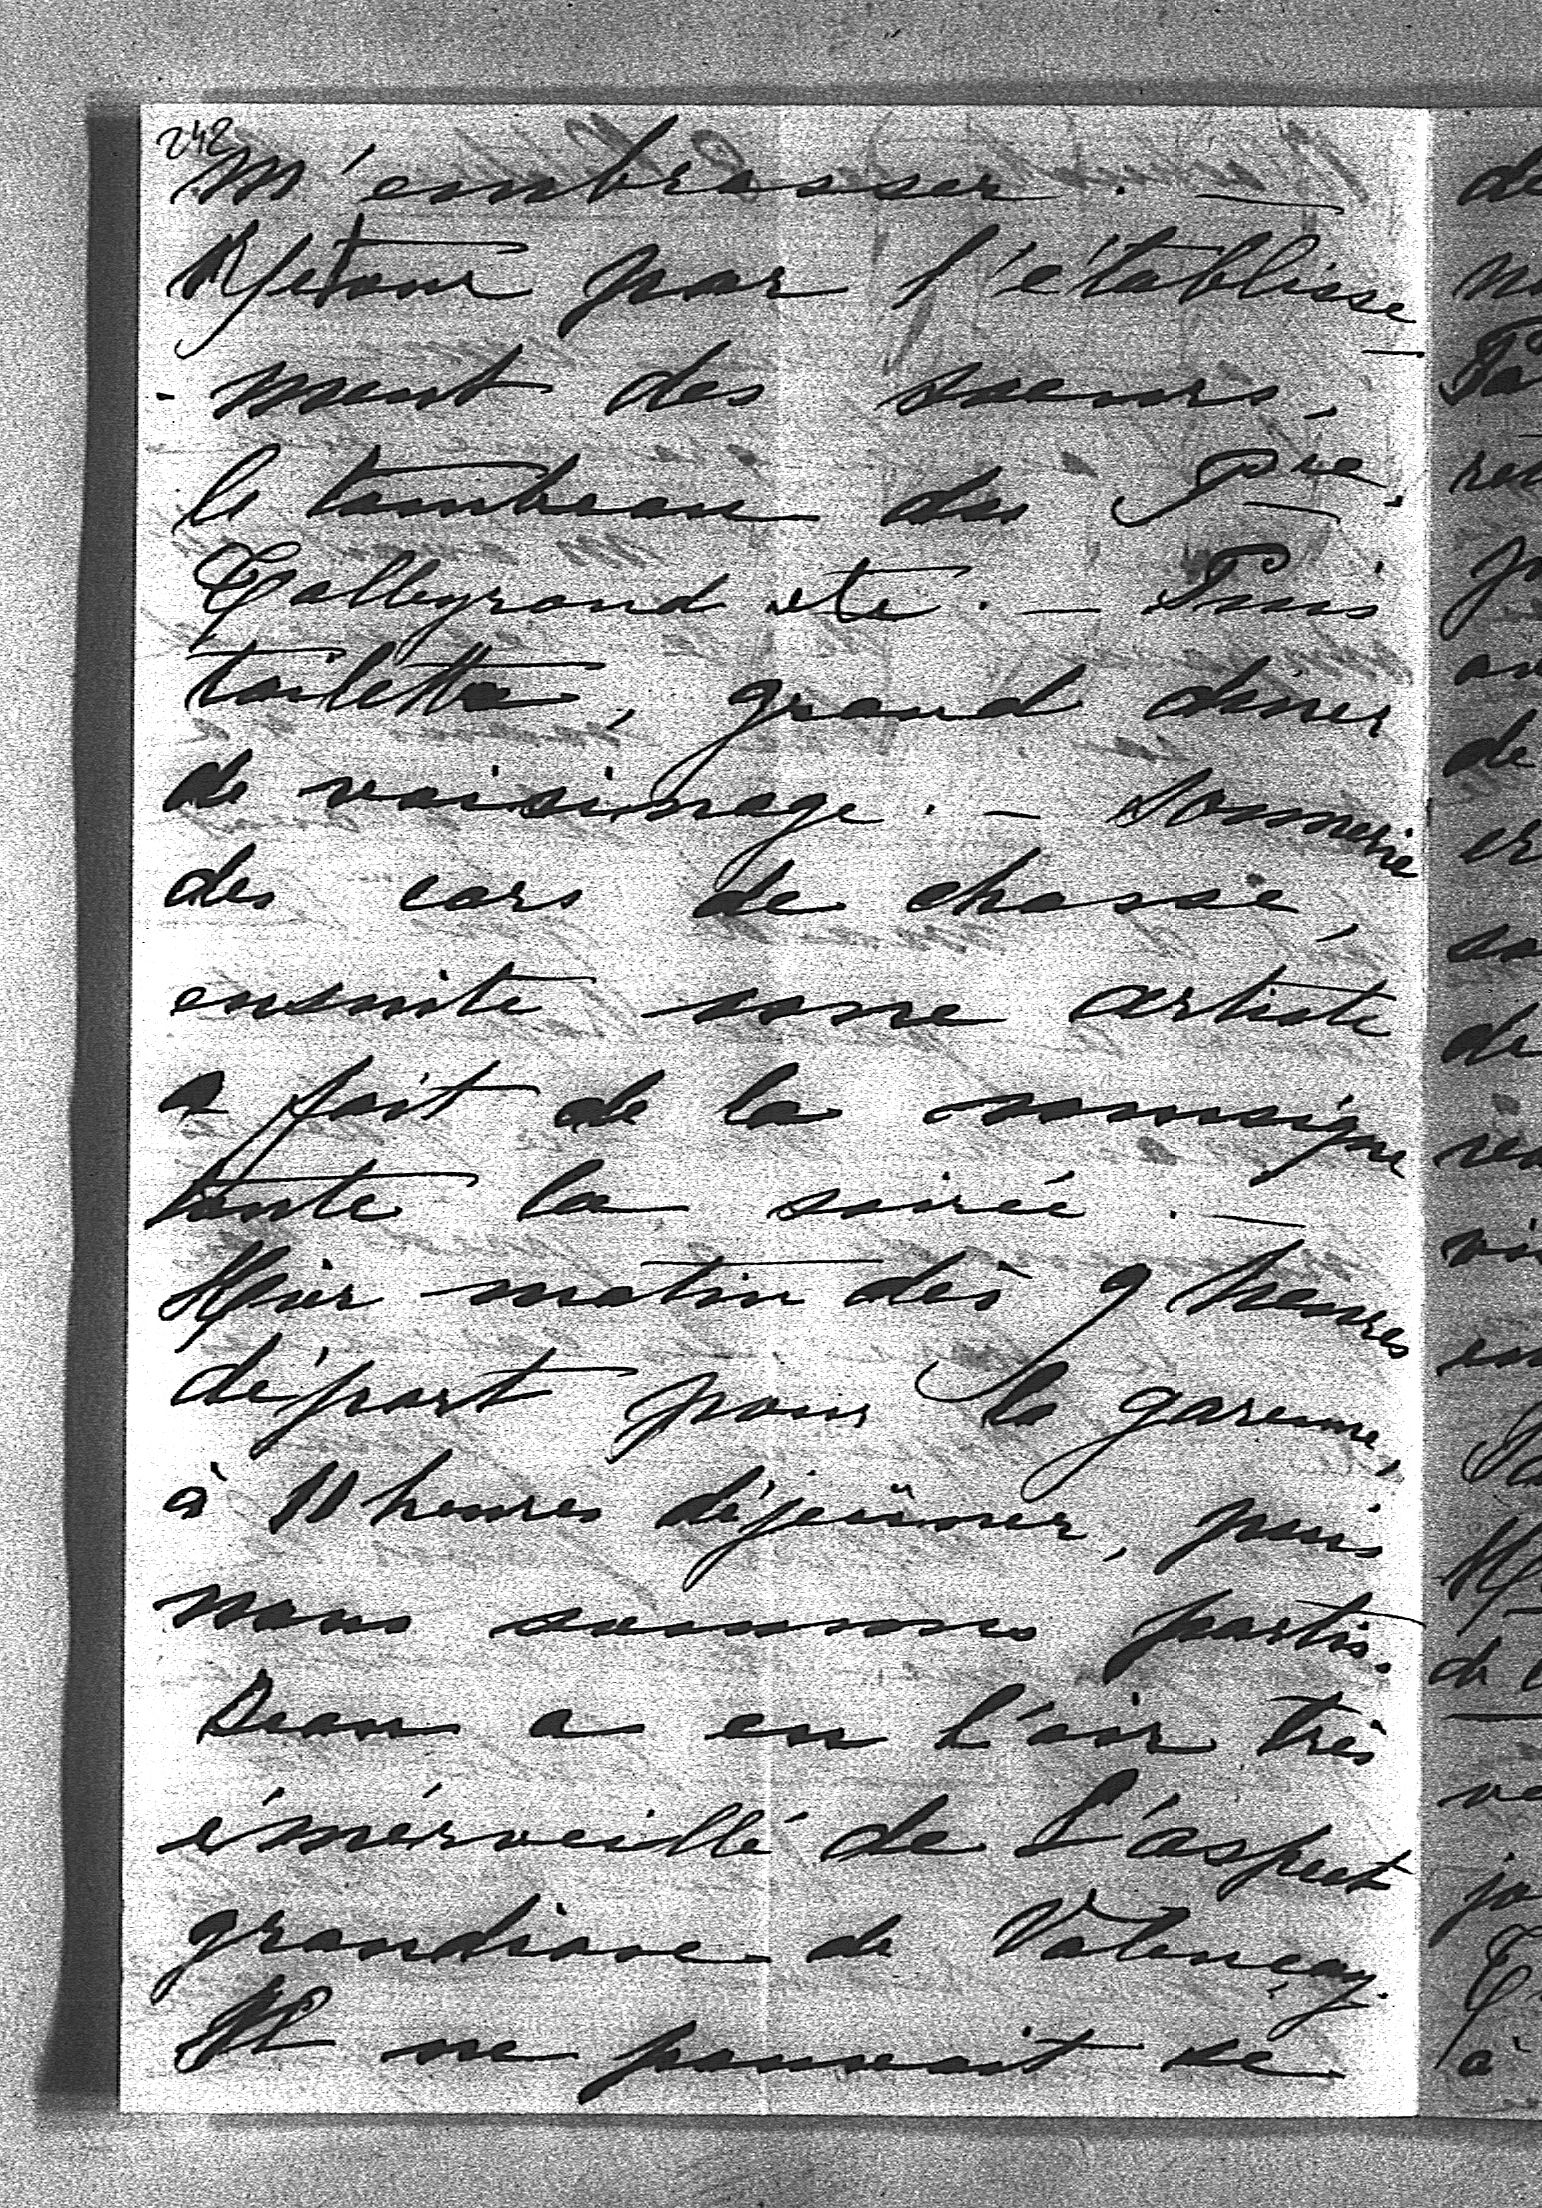 242
m'embrasser. —
Retour par l'établisse-
-ment des soeurs,
le tombeau du Pce.
Talleyrand etc. — Puis
toilette, grand diner
de voisinage. — Sonnerie
des cors de chasse,
ensuite une artiste
a fait de la musique
toute la soirée. —
Hier matin dès 9 heures
départ pour la garenne,
à 11 heures déjeûner, puis
nous sommes partis.
a eu l'air très
émerveillé de l'aspect
grandiose de Valençay.
Il ne pouvait se